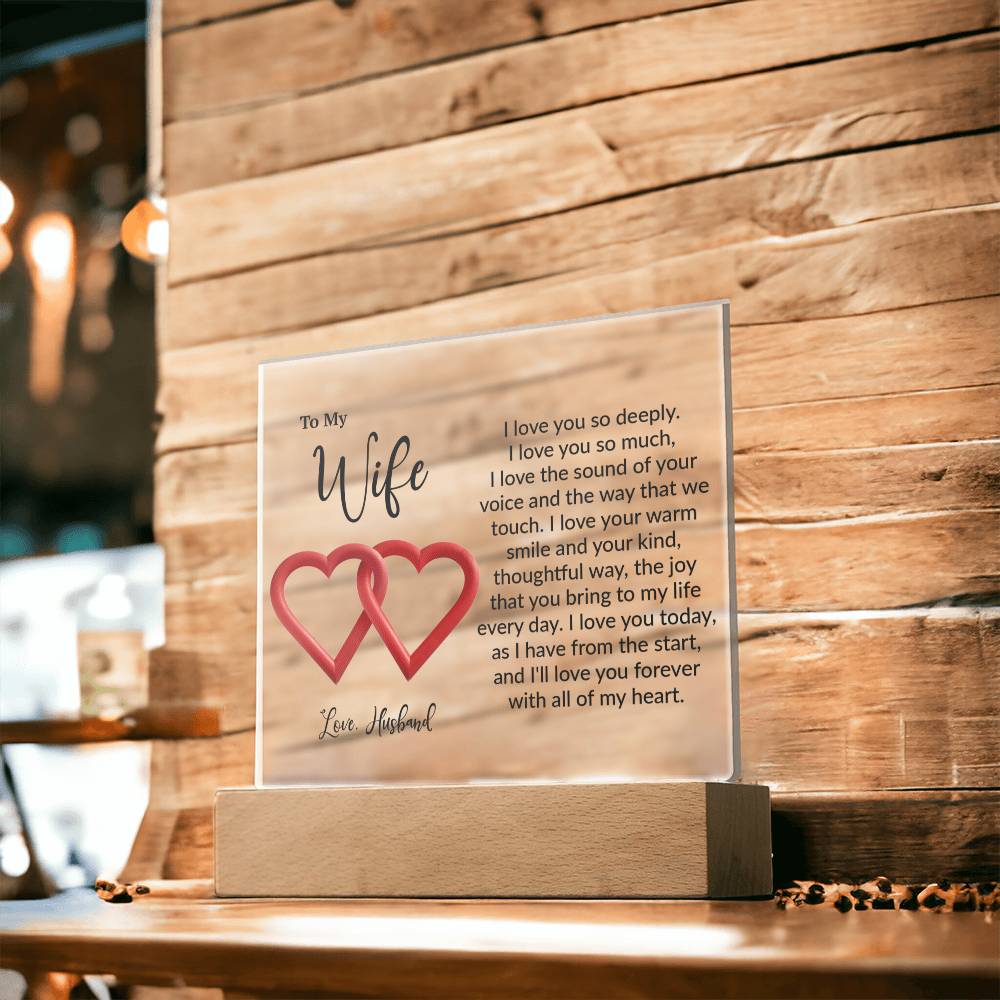 To My
Wife
Love, Husband
I love you so deeply.
I love you so much,
I love the sound of your
voice and the way that we
touch. I love your warm
smile and your kind,
thoughtful way, the joy
that you bring to my life
every day. I love you today,
as I have from the start,
and I'll love you forever
with all of my heart.